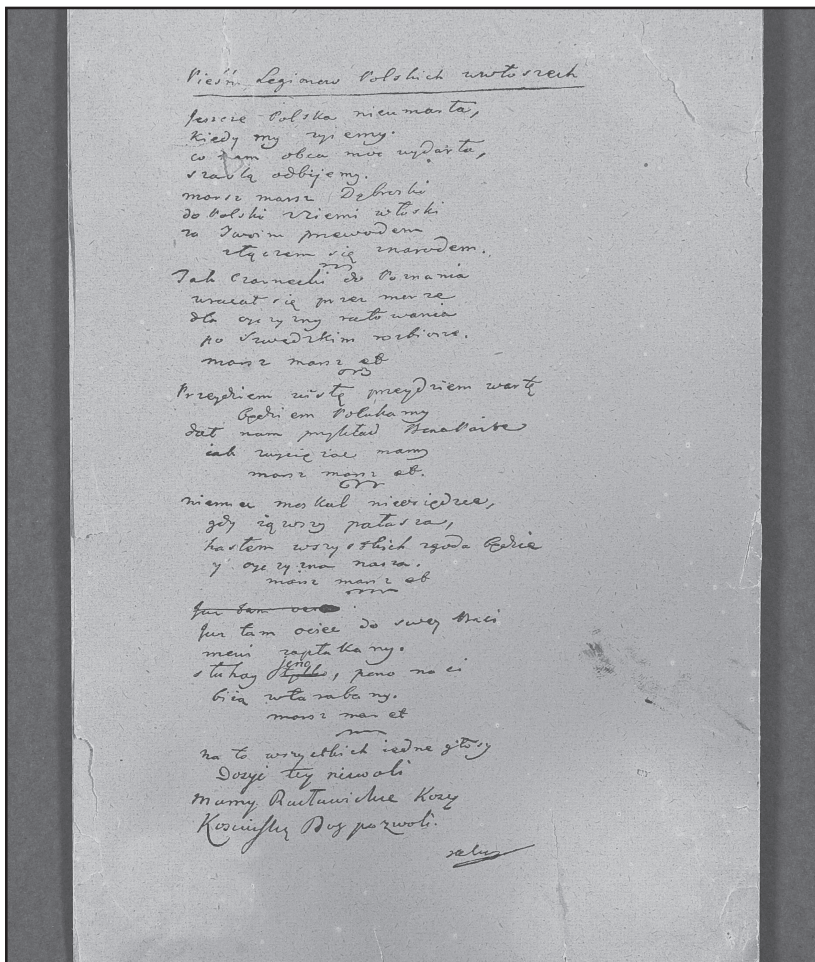 Pieśń Legionow Polskich wewłoszech
Jeszcze Polska nieumarła,
kiedy my żyiemy.
co nam obca moc wydarła,
szablą odbijemy.
marsz marsz Dąbroski
do Polski zziemi włoski
za Twoim przewodem
złączem się znarodem.
Jak Czarnecki do Poznania
wracał się przez morze
dla oyczyzny ratowania
po Szwedzkim rozbiorze.
marsz marsz et
Przeydziem wisłę przeydziem wartę
będziem Polakamy
dał nam przykład Bonaparte
iak zwyciężac mamy
marsz marsz et.
niemiec moskal nieosiędzie,
gdy iąwszy pałasza,
hasłem wszystkich zgoda będzie
y oyczyzna nasza.
marsz marsz et
Już tam
Już tam ociec do swey Basi
mowi zapłakany.
słuchay jeno, pono nasi
biią wtarabany.
marsz mar et
na to wszystkich iedne głosy
Dosyć tey niewoli
mamy Racławickie Kosy
Kosciuszkę Bog pozwoli.